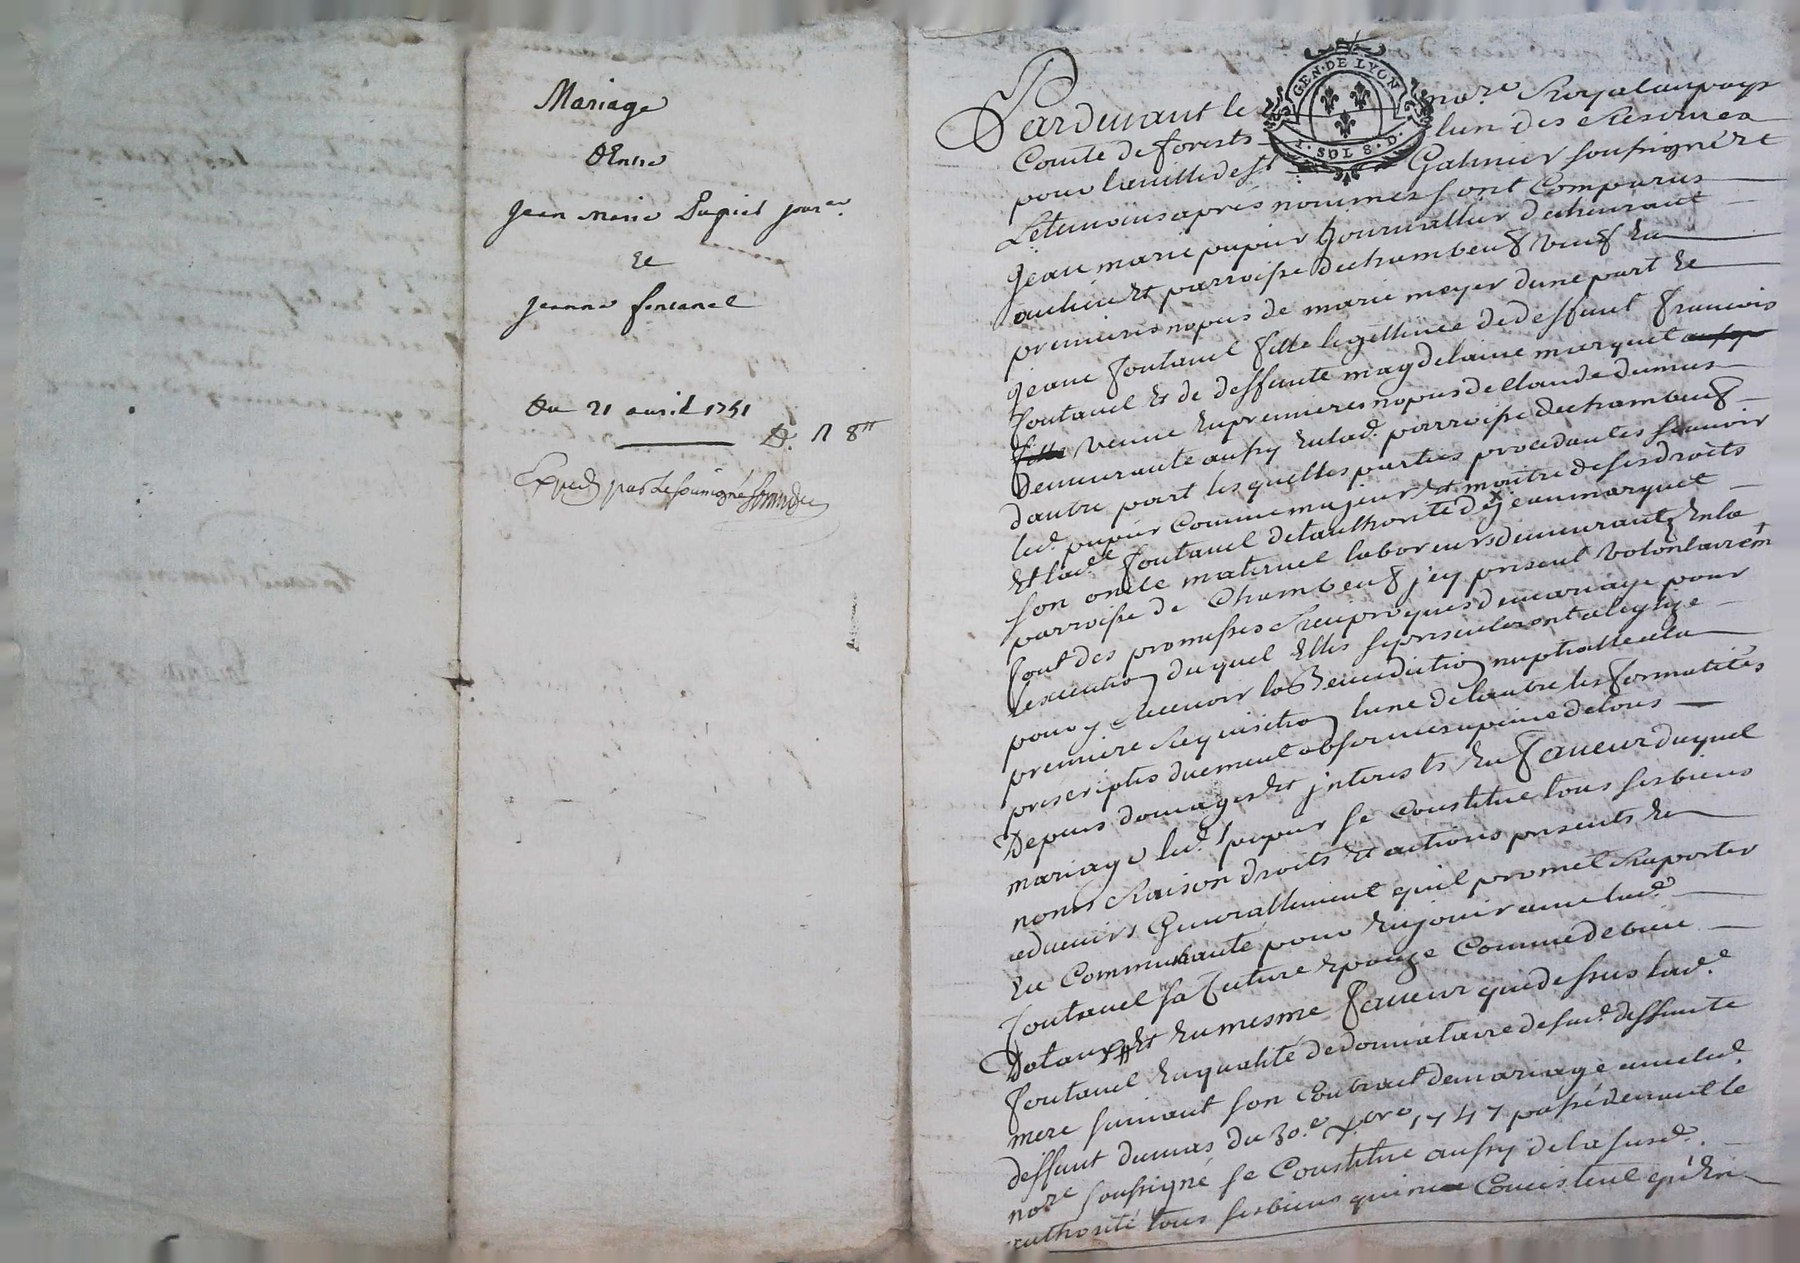 Mariage
Entre
Jean Marie Pupiel jour.er
et
Jeanne fontanel
Du 21 auril 1751
Exped par le soussigné
GEN·DE LYON
1·SOL 8·D·
Pardeuant le no.re Royal au pays
Comté de forests lun des Reserués
pour la ville de S.t Galmier soussigné et
Les temoins apres nommés sont Comparus
jean marie pupier journallier decheurant
au lieu et parroisse de chambeuf veuf en
premieres nopces de marie meyer dune part et
jeane fontanel fille legettime de deffunt francois
fontanel et de deffunte magdelaine marquet
veuue en premieres nopces de Claude dumas
demeurante aussy en lad. parroisse de chambeuf
dautre part lesquelles parties procedantes scauoir
led. pupier Comme majeur et maitre de ses droits
et lad.e fontanel de lauthorité de jean marquet
son oncle maternel laboreur demeurant en la
parroisse de Chambeuf jcy present volontairem.t
font des promesses Reciproques de mariage pour
lexecution duquel elles se presenteront a leglize
pour y Receuoir la Benediction nuptialle a la
premiere Requisition lune de lautre les formalités
prescriptes duement obseruées a peine de tous
Depens domages et jnterests En faueur duquel
mariage led. pupier se Constitue tous ses biens
noms Raison droits et actions presents et
aduenirs Generallement quil promet Raporter
en Communauté pour en jouir auec lad.e
fontanel sa future epouze Comme de bien
Dotaux et en mesme faueur que dessus lad.e
fontanel en qualité de donnataire de sad. deffunte
mere suiuant son Contract de mariage auec led.
deffunt dumas du 30.e xbre 1747 passé deuant le
no.re soussigné se Constitue aussy de la susd.
authorité tous ses biens qui ne Consistent qu'en